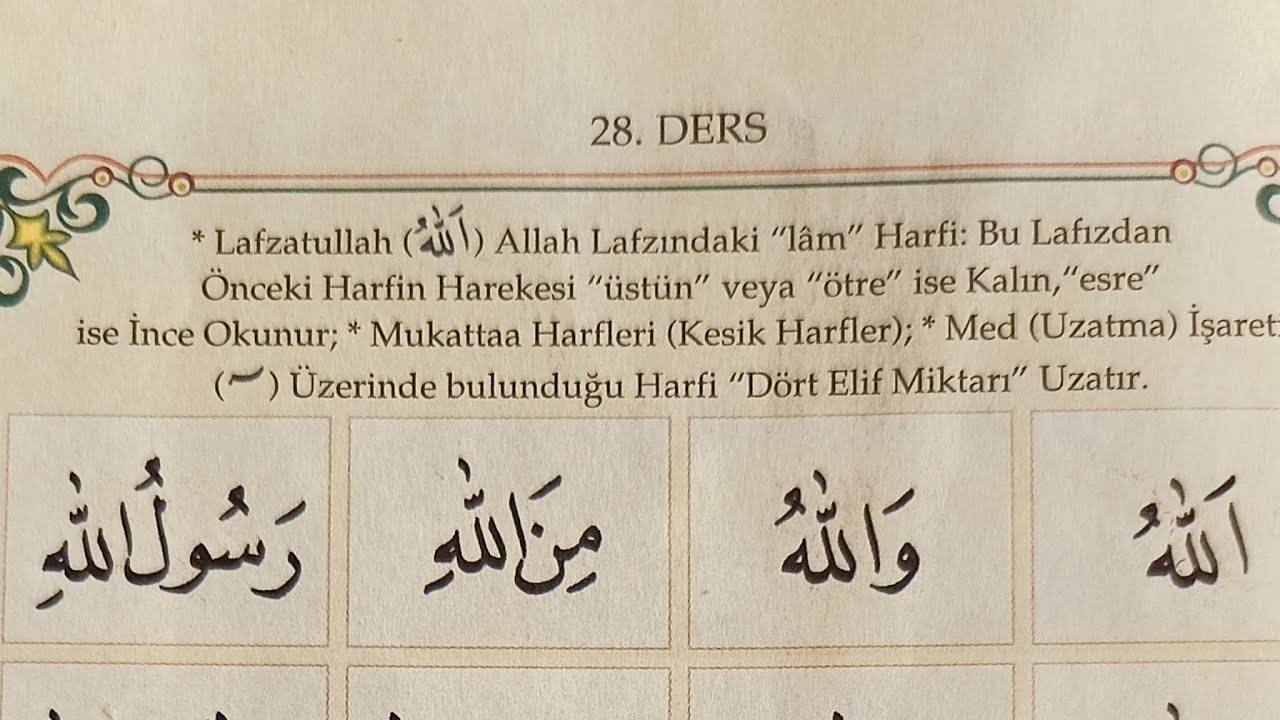 28. DERS
* Lafzatullah (اَللّٰهُ) Allah Lafzındaki “lâm” Harfi: Bu Lafızdan
Önceki Harfin Harekesi “üstün” veya “ötre” ise Kalın,“esre”
ise İnce Okunur; * Mukattaa Harfleri (Kesik Harfler); * Med (Uzatma) İşareti
(ۤ) Üzerinde bulunduğu Harfi “Dört Elif Miktarı” Uzatır.
اَللّٰهُ وَاللّٰهُ مِنَ اللّٰهِ رَسُولُ اللّٰهِ